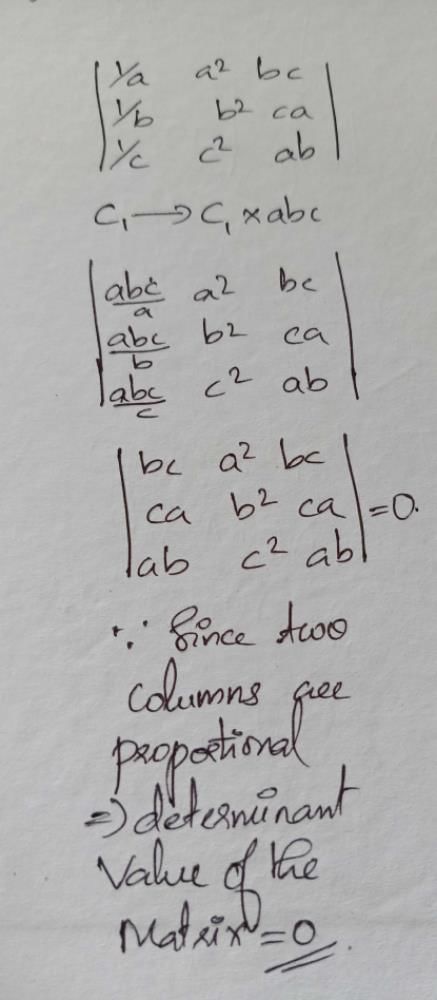 | 1/a a² bc |
| 1/b b² ca |
| 1/c c² ab |
C₁ → C₁ × abc
| abc/a a² bc |
| abc/b b² ca |
| abc/c c² ab |
| bc a² bc |
| ca b² ca | = 0.
| ab c² ab |
∵ Since two
columns are
propotional
⇒ determinant
Value of the
Matrix = 0.